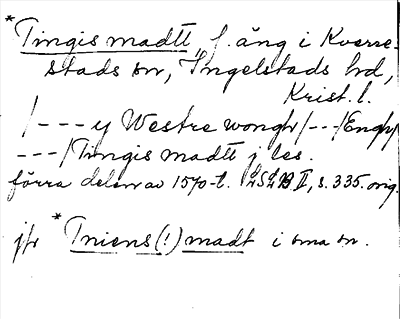 *Tingis madtt, f. äng i Kverre-
stads sn, Ingelstads hd,
Krist. l.
/--- y Westre wongh/---/Engh/
---/Tingis madtt j les.
förra delen av 1570-t. LSLB II, s. 335. orig.
jfr *Tniens(!)madt i sma sn.